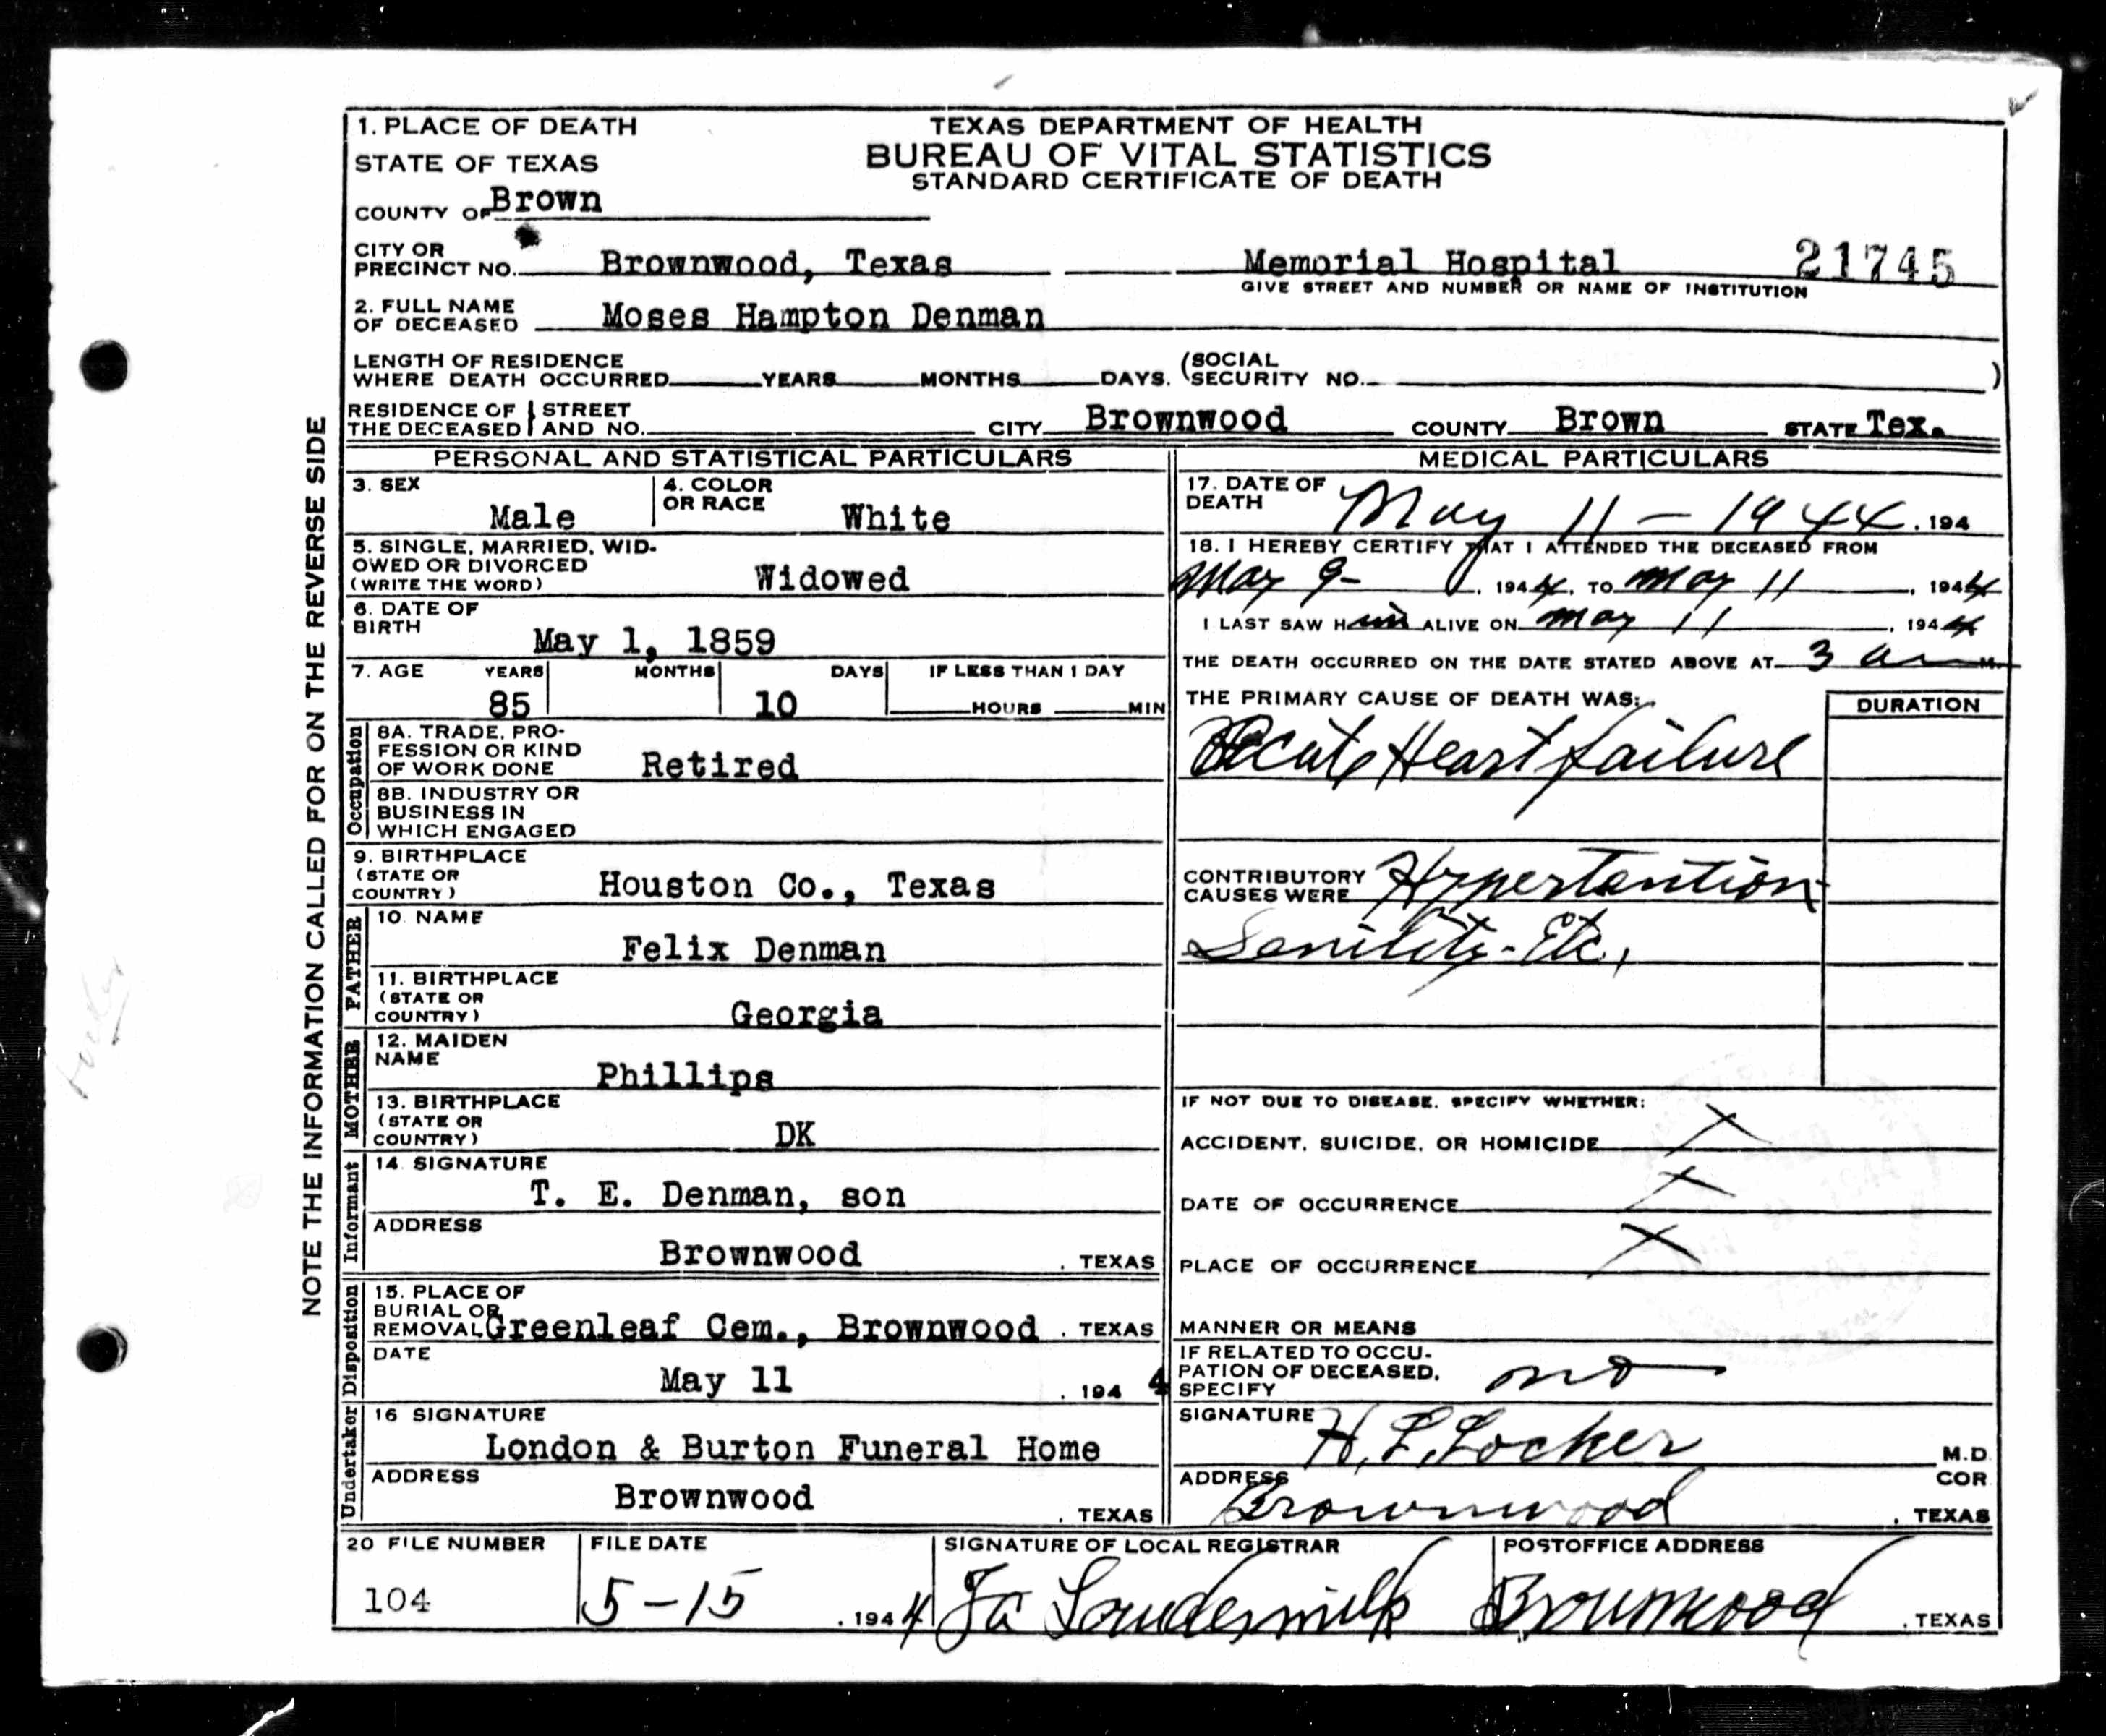 TEXAS DEPARTMENT OF HEALTH
BUREAU OF VITAL STATISTICS
STANDARD CERTIFICATE OF DEATH
1. PLACE OF DEATH
STATE OF TEXAS
COUNTY OF Brown
CITY OR PRECINCT NO. Brownwood, Texas Memorial Hospital 21745
GIVE STREET AND NUMBER OR NAME OF INSTITUTION
2. FULL NAME
OF DECEASED Moses Hampton Denman
LENGTH OF RESIDENCE (SOCIAL
WHERE DEATH OCCURRED YEARS MONTHS DAYS. SECURITY NO. )
RESIDENCE OF THE DECEASED STREET AND NO. CITY Brownwood COUNTY Brown STATE Tex.
PERSONAL AND STATISTICAL PARTICULARS
3. SEX Male
4. COLOR OR RACE White
5. SINGLE, MARRIED, WID-
OWED OR DIVORCED
(WRITE THE WORD) Widowed
6. DATE OF
BIRTH May 1, 1859
7. AGE YEARS MONTHS DAYS IF LESS THAN 1 DAY
85 10 HOURS MIN
Occupation
8A. TRADE, PRO-
FESSION OR KIND
OF WORK DONE Retired
8B. INDUSTRY OR
BUSINESS IN
WHICH ENGAGED
9. BIRTHPLACE
(STATE OR
COUNTRY) Houston Co., Texas
FATHER
10. NAME
Felix Denman
11. BIRTHPLACE
(STATE OR
COUNTRY) Georgia
MOTHER
12. MAIDEN
NAME Phillips
13. BIRTHPLACE
(STATE OR
COUNTRY) DK
Informant
14. SIGNATURE
T. E. Denman, son
ADDRESS
Brownwood . TEXAS
Disposition
15. PLACE OF
BURIAL OR
REMOVAL Greenleaf Cem., Brownwood . TEXAS
DATE
May 11 . 194 4
Undertaker
16 SIGNATURE
London & Burton Funeral Home
ADDRESS
Brownwood . TEXAS
MEDICAL PARTICULARS
17. DATE OF
DEATH May 11 - 1944 . 194
18. I HEREBY CERTIFY THAT I ATTENDED THE DECEASED FROM
May 9- , 1944, TO May 11 , 1944
I LAST SAW Him ALIVE ON May 11 , 1944
THE DEATH OCCURRED ON THE DATE STATED ABOVE AT 3 am M.
THE PRIMARY CAUSE OF DEATH WAS: DURATION
Acute Heart failure
CONTRIBUTORY
CAUSES WERE Hypertention
Senility - Etc.
IF NOT DUE TO DISEASE, SPECIFY WHETHER:
ACCIDENT, SUICIDE, OR HOMICIDE X
DATE OF OCCURRENCE X
PLACE OF OCCURRENCE X
MANNER OR MEANS
IF RELATED TO OCCU-
PATION OF DECEASED,
SPECIFY no
SIGNATURE H. L. Locker M.D.
COR
ADDRESS Brownwood . TEXAS
20 FILE NUMBER FILE DATE SIGNATURE OF LOCAL REGISTRAR POSTOFFICE ADDRESS
104 5-15 . 1944 Loudermilk Brownwood . TEXAS
NOTE THE INFORMATION CALLED FOR ON THE REVERSE SIDE